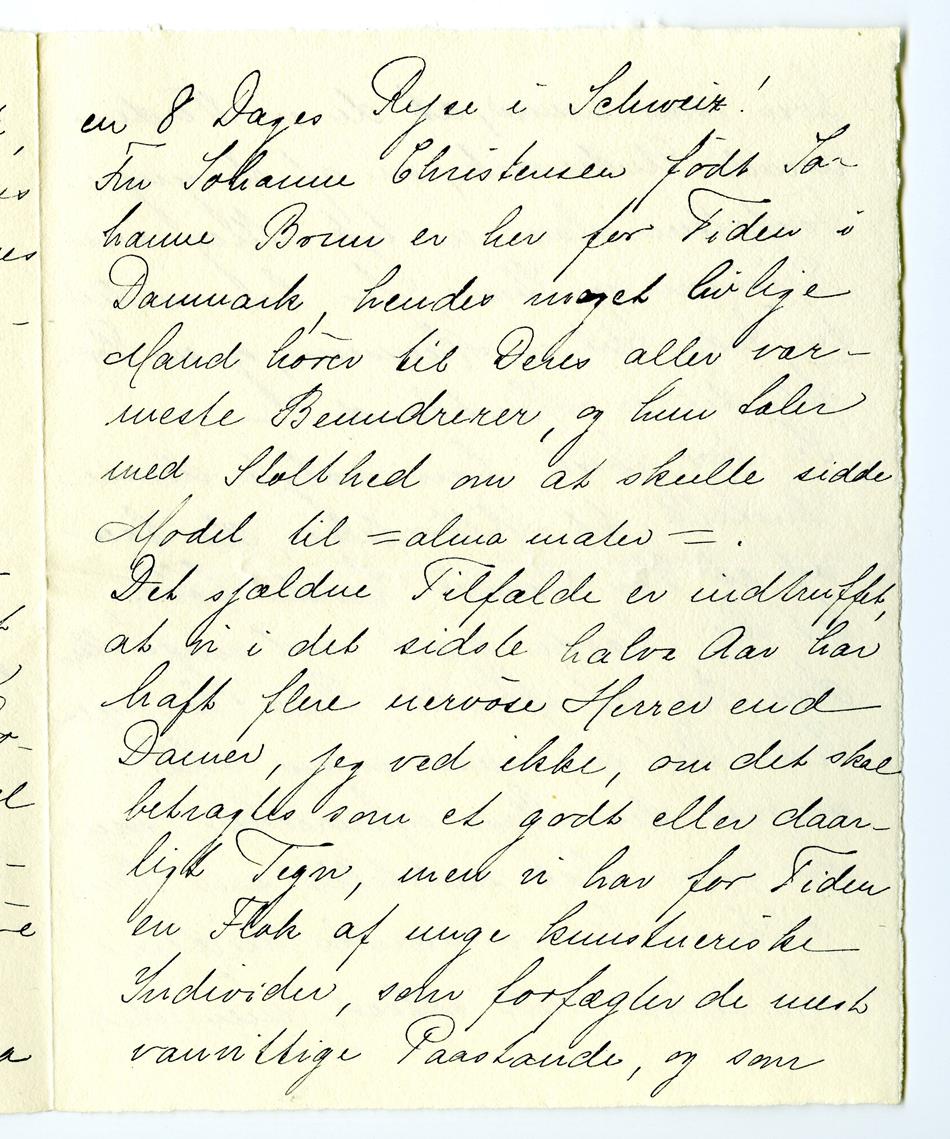 en 8 Dages Rejse i Schweiz!
Fru Johanne Christensen født Jo-
hanne Brun er her for Tiden i
Danmark, hendes meget livlige
Mand hører til Deres aller var-
meste Beundrerer, og hun taler
med Stolthed om at skulle sidde
Model til =alma mater=.
Det sjældne Tilfælde er indtruffet,
at vi i det sidste halve Aar har
haft flere nervøse Herrer end
Damer, jeg ved ikke, om det skal
betragtes som et godt eller daar-
ligt Tegn, men vi har for Tiden
en Flok af unge kunstneriske
Individer, som forfægter de mest
vanvittige Paastande, og som